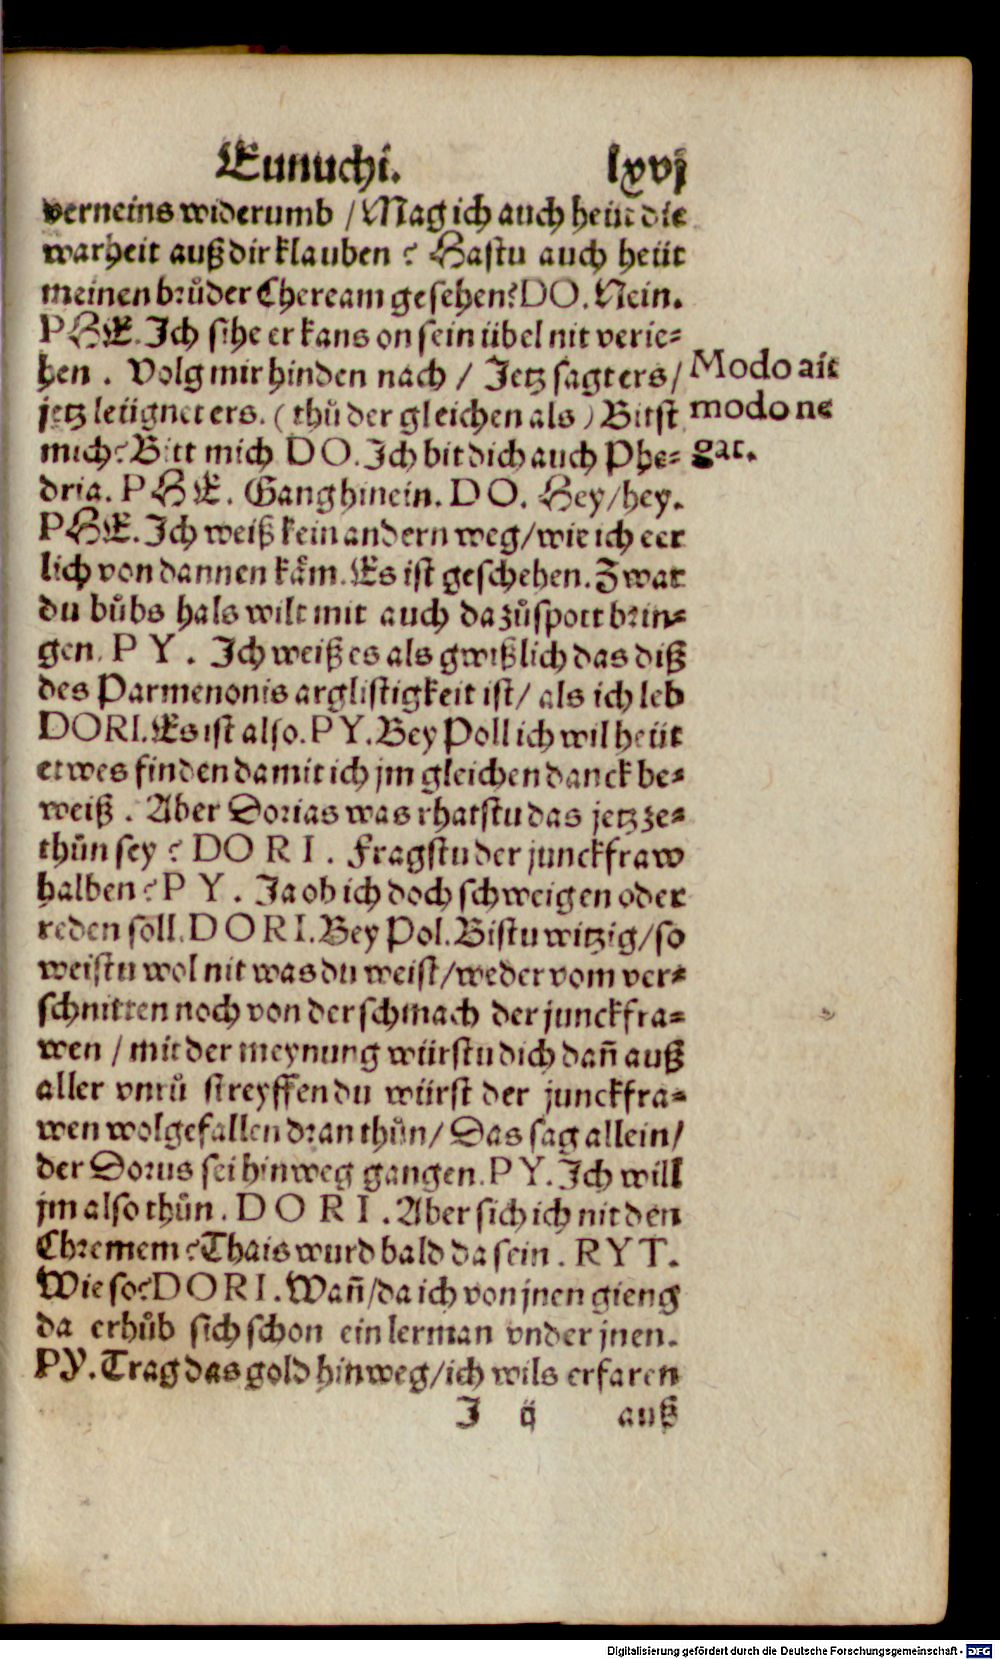 Eunuchi. lxvj
verneins widerumb / Mag ich auch heüt die
warheit auß dir klauben ? Hastu auch heüt
meinen brůder Cheream gesehen? DO. Nein.
PHE. Ich sihe er kans on sein übel nit verie-
hen . Volg mir hinden nach / Jetz sagt ers /
jetz leügnet ers. ( thů der gleichen als ) Bitst
mich? Bitt mich DO. Ich bit dich auch Phe-
dria. PHE. Gang hinein. DO. Hey/hey.
PHE. Ich weiß kein andern weg/wie ich eer
lich von dannen kåm. Es ist geschehen. Zwar
du bůbs hals wilt mit auch da zů spott brin-
gen. P Y . Ich weiß es als gwißlich das diß
des Parmenonis arglistigkeit ist/ als ich leb
DORI. Es ist also. P Y. Bey Poll ich wil heüt
etwes finden damit ich jm gleichen danck be-
weiß . Aber Dorias was rhatstu das jetz ze-
thůn sey ? DO R I . Fragstu der junckfraw
halben? P Y . Ja ob ich doch schweigen oder
reden soll. D O R I. Bey Pol. Bistu witzig/so
weistu wol nit was du weist/weder vom ver-
schnitten noch von der schmach der junckfra-
wen / mit der meynung würstu dich dañ auß
aller vnrů streyffen du würst der junckfra-
wen wolgefallen dran thůn/ Das sag allein/
der Dorus sei hinweg gangen. P Y. Ich will
jm also thůn . D O R I . Aber sich ich nit den
Chremem? Thais wurd bald da sein . R Y T.
Wie so? D O R I . Wañ/da ich von jnen gieng
da erhůb sich schon ein lerman vnder jnen.
PY. Trag das gold hinweg/ich wils erfaren
J ij auß
Modo ait
modo ne
gat.
Digitalisierung gefördert durch die Deutsche Forschungsgemeinschaft - DFG